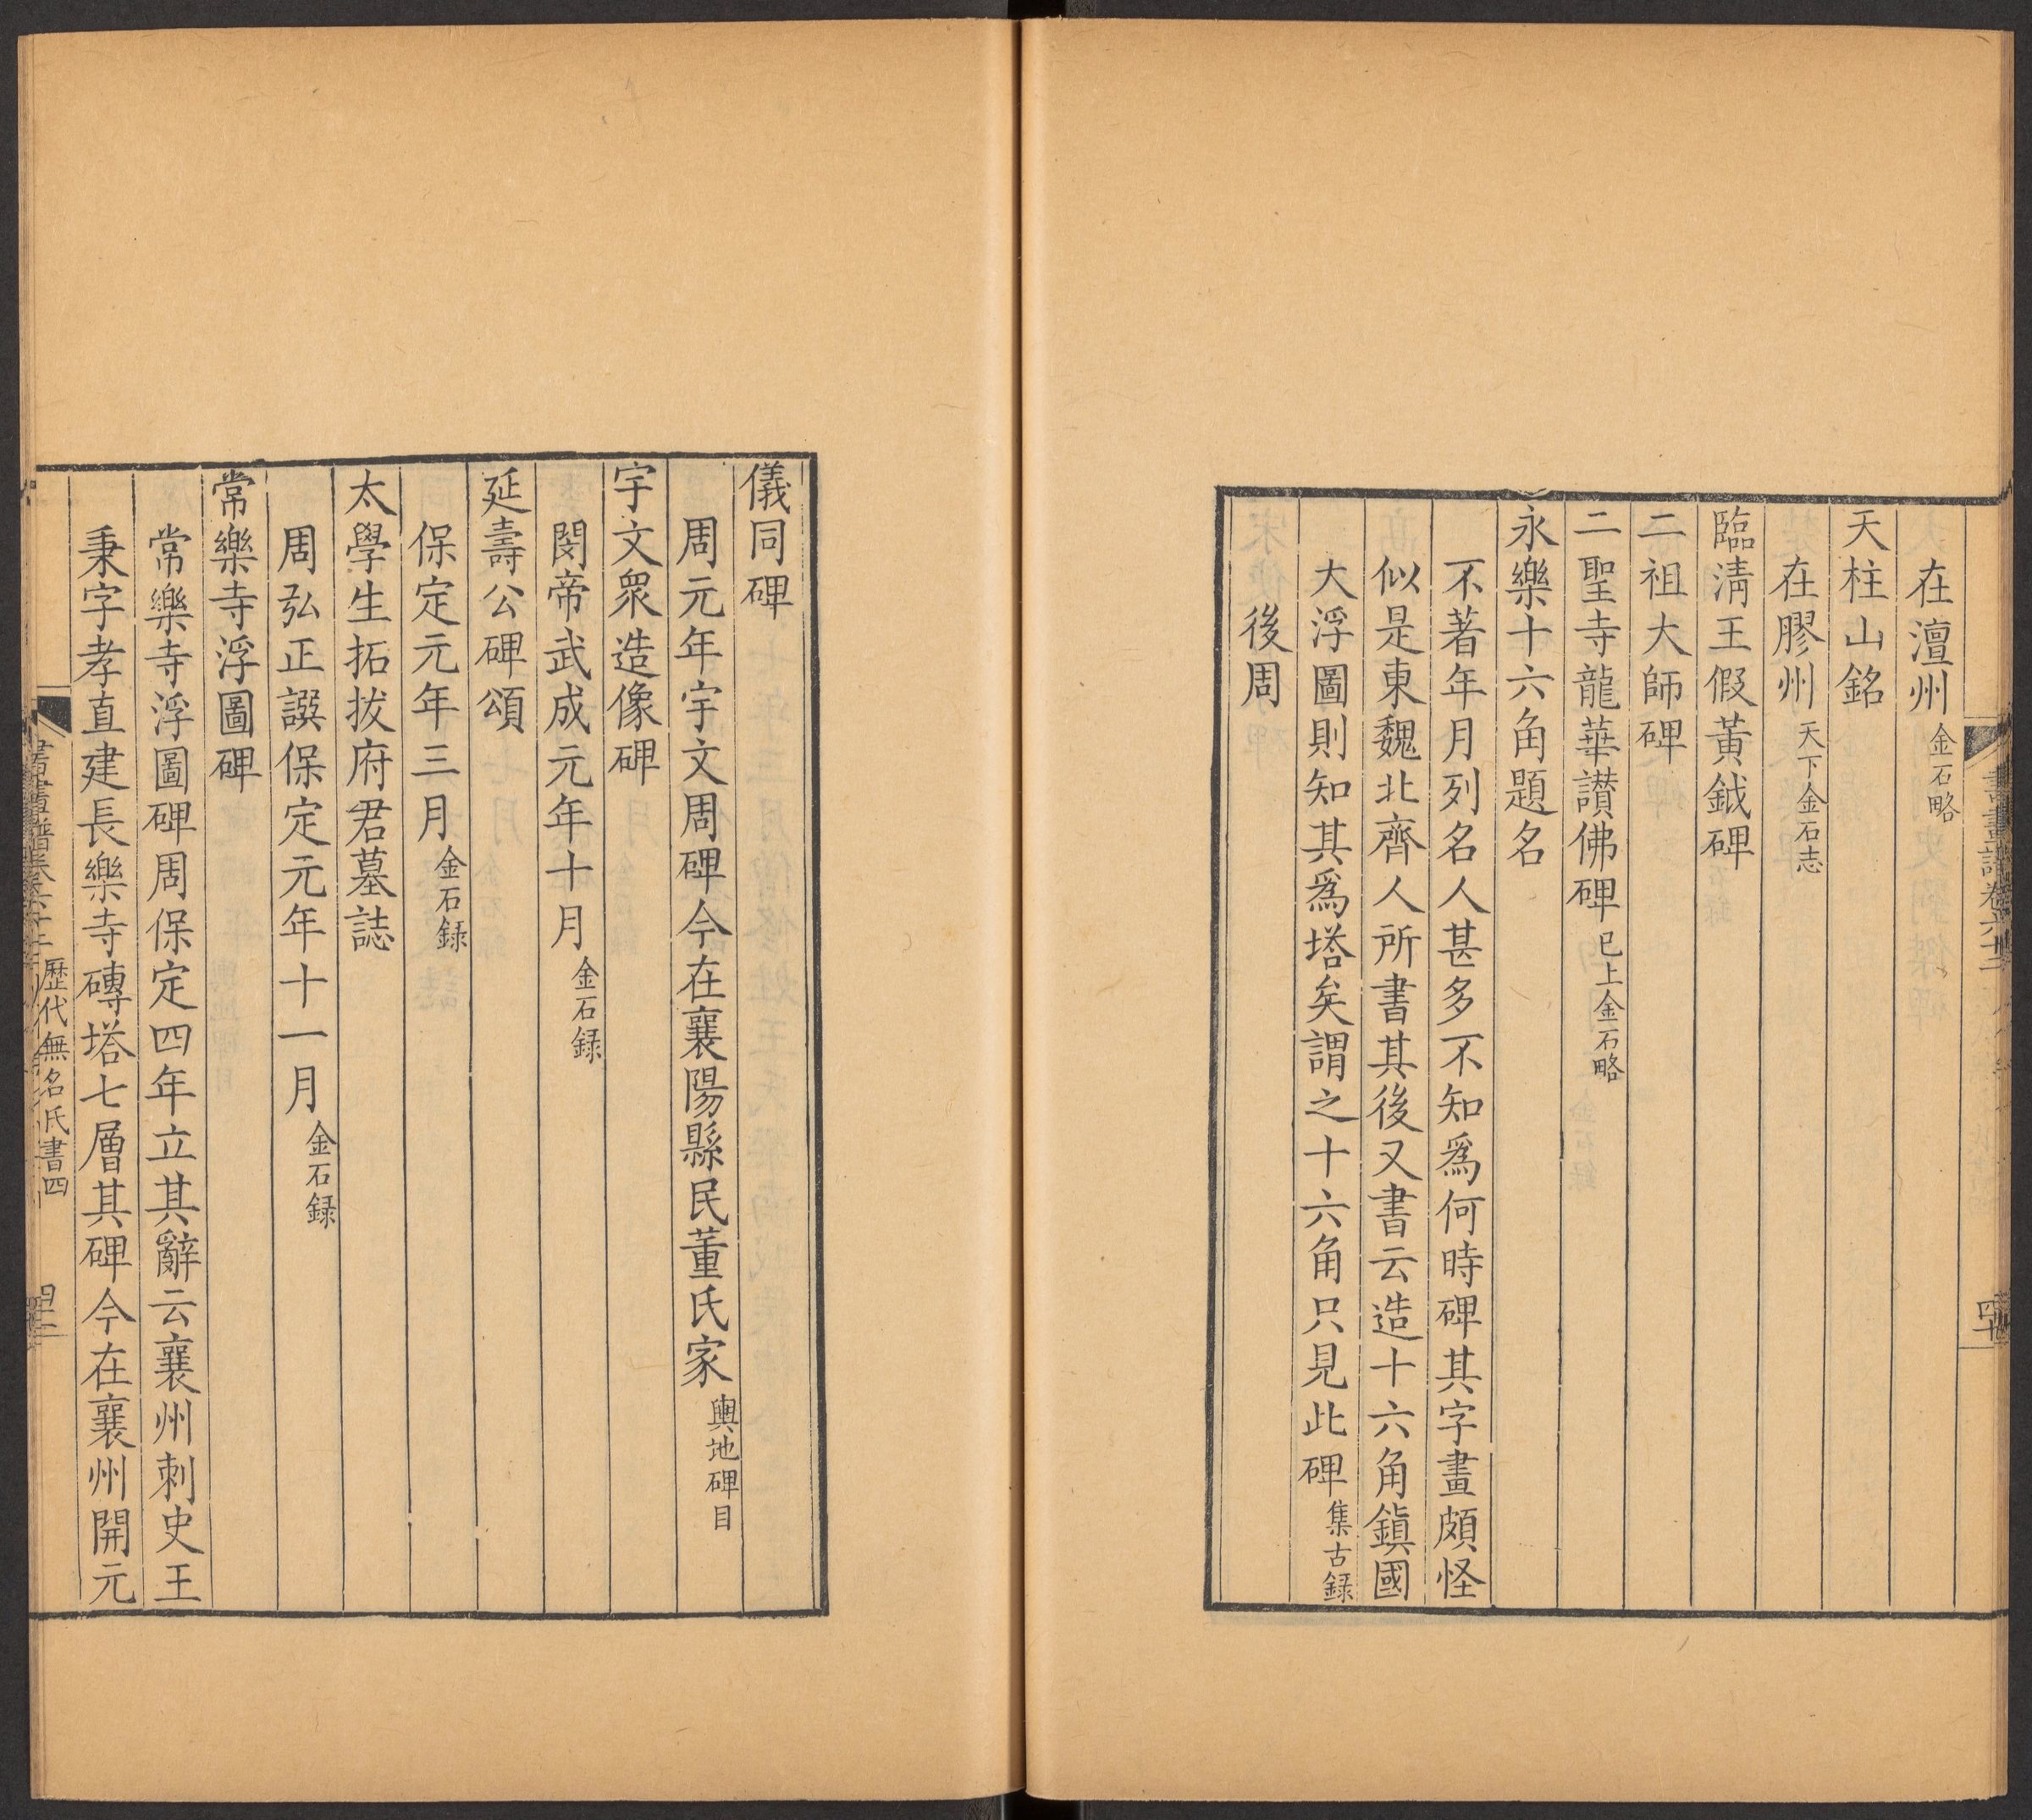 在澶州金石略
天柱山銘
在膠州天下金石志
臨淸王假黃鉞碑
二祖大師碑
二聖寺龍華讃佛碑已上金石略
永樂十六角題名
不著年月列名人甚多不知爲何時碑其字畫頗怪
似是東魏北齊人所書其後又書云造十六角鎮國
大浮圖則知其爲塔矣謂之十六角只見此碑集古録
後周
儀同碑
周元年宇文周碑今在襄陽縣民董氏家輿地碑目
宇文衆造像碑
閔帝武成元年十月金石録
延壽公碑頌
保定元年三月金石録
太學生拓拔府君墓誌
周弘正譔保定元年十一月金石録
常樂寺浮圖碑
常樂寺浮圖碑周保定四年立其辭云襄州刺史王
秉字孝直建長樂寺磚塔七層其碑今在襄州開元
歷代無名氏書四